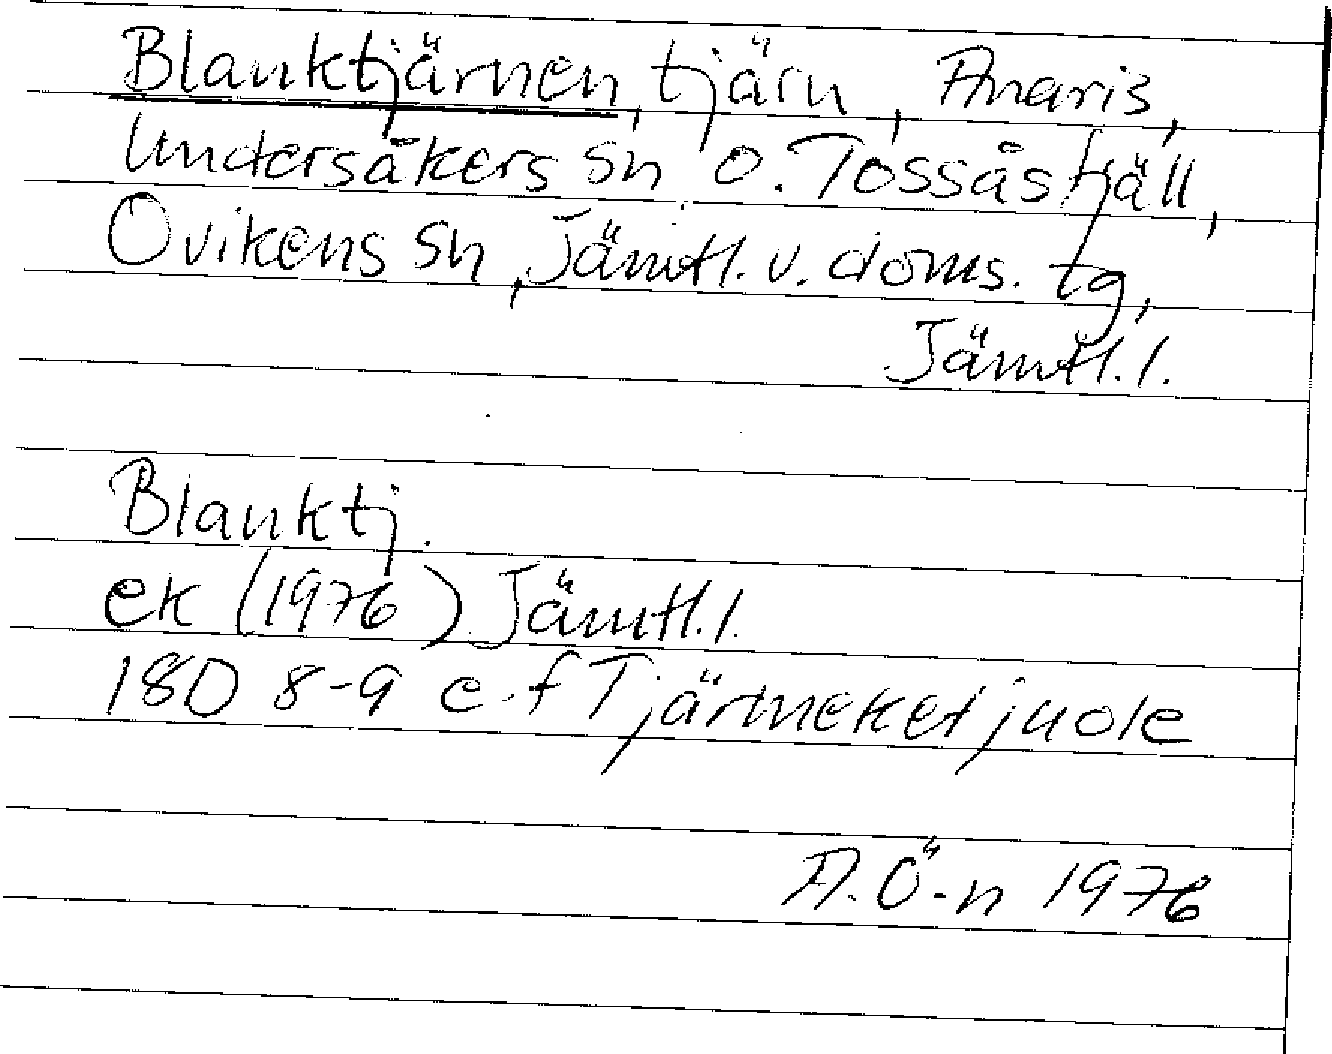 Blanktjärnen, tjärn, Anaris,
Undersåkers sn o. Tossåsfjäll,
Ovikens sn, Jämtl. v. doms. tg,
Jämtl. l.
Blanktj.
ek (1976) Jämtl. l.
18D 8-9 e-f Tjärmeketjuole
A. Ö-n 1976